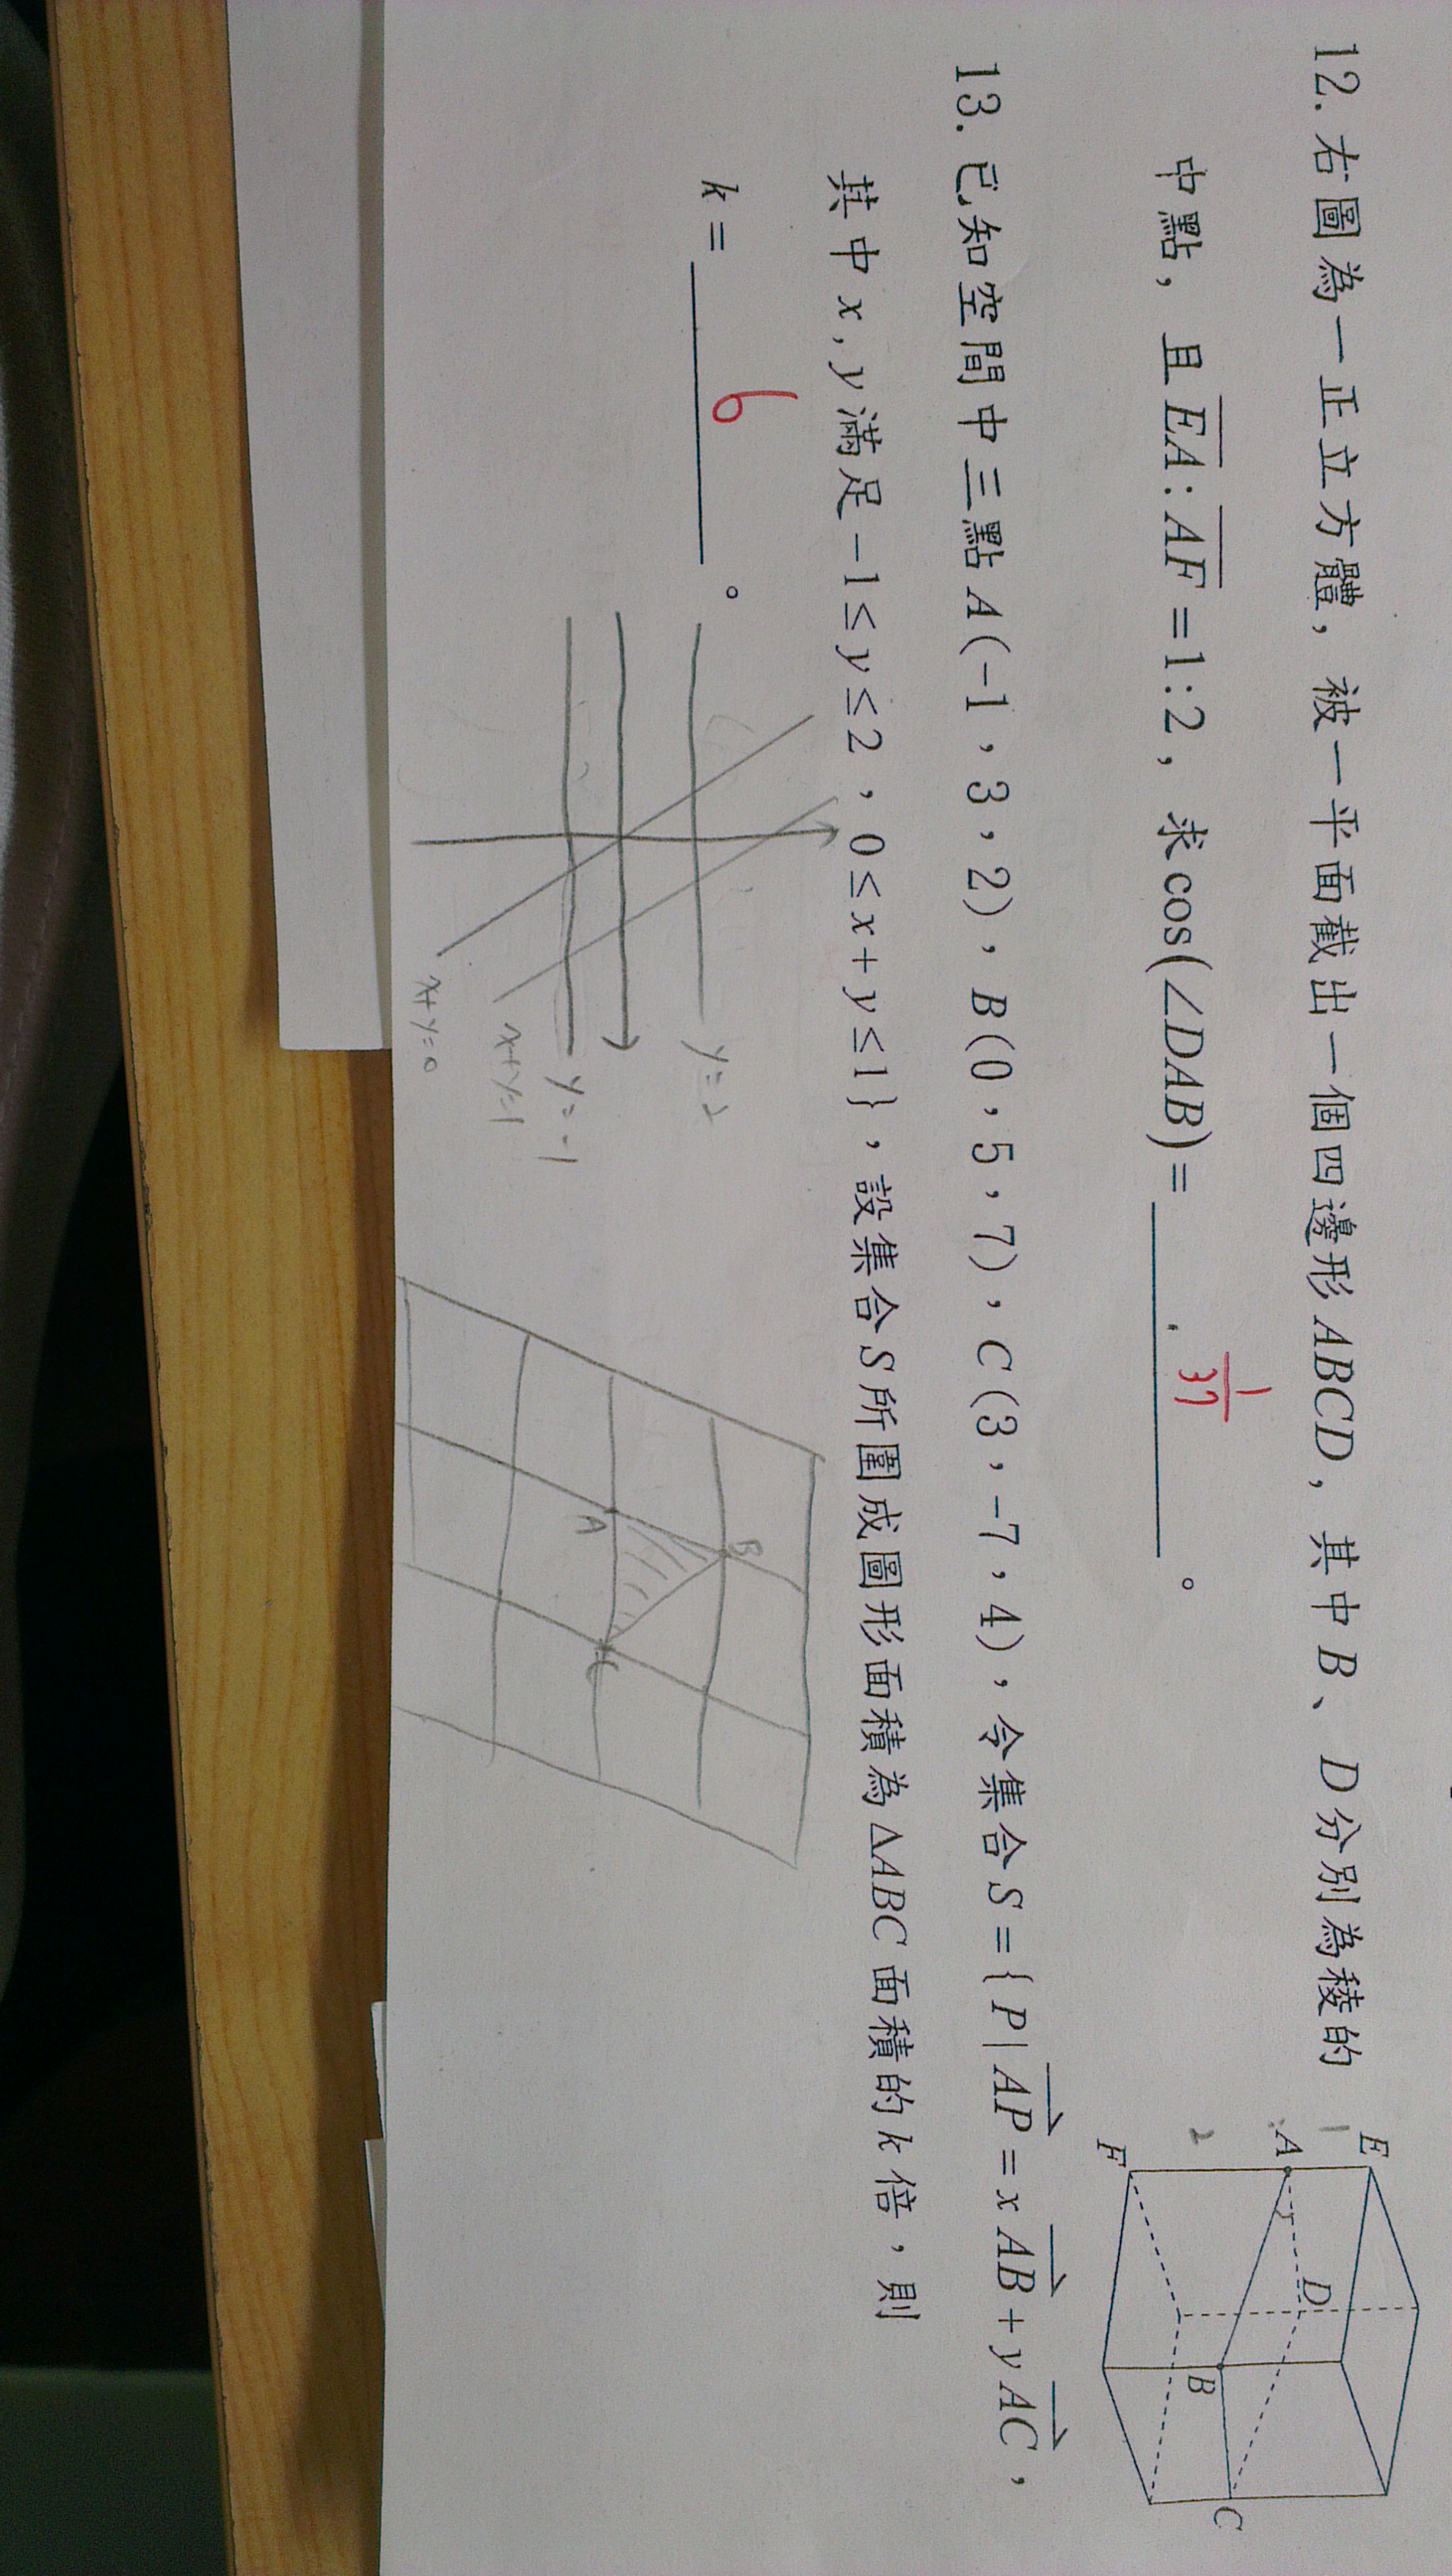 12. 右圖為一正立方體，被一平面截出一個四邊形ABCD，其中B、D分別為稜的
中點，且EA:AF=1:2，求cos(∠DAB)= 1/37 。
E
1
A
2
F
D
B
C
13. 已知空間中三點A(-1,3,2)，B(0,5,7)，C(3,-7,4)，令集合S={P|AP=xAB+yAC，
其中x,y滿足-1≤y≤2，0≤x+y≤1}，設集合S所圍成圖形面積為ΔABC面積的k倍，則
k= 6 。
y=2
y=-1
x+y=1
x+y=0
B
A
C